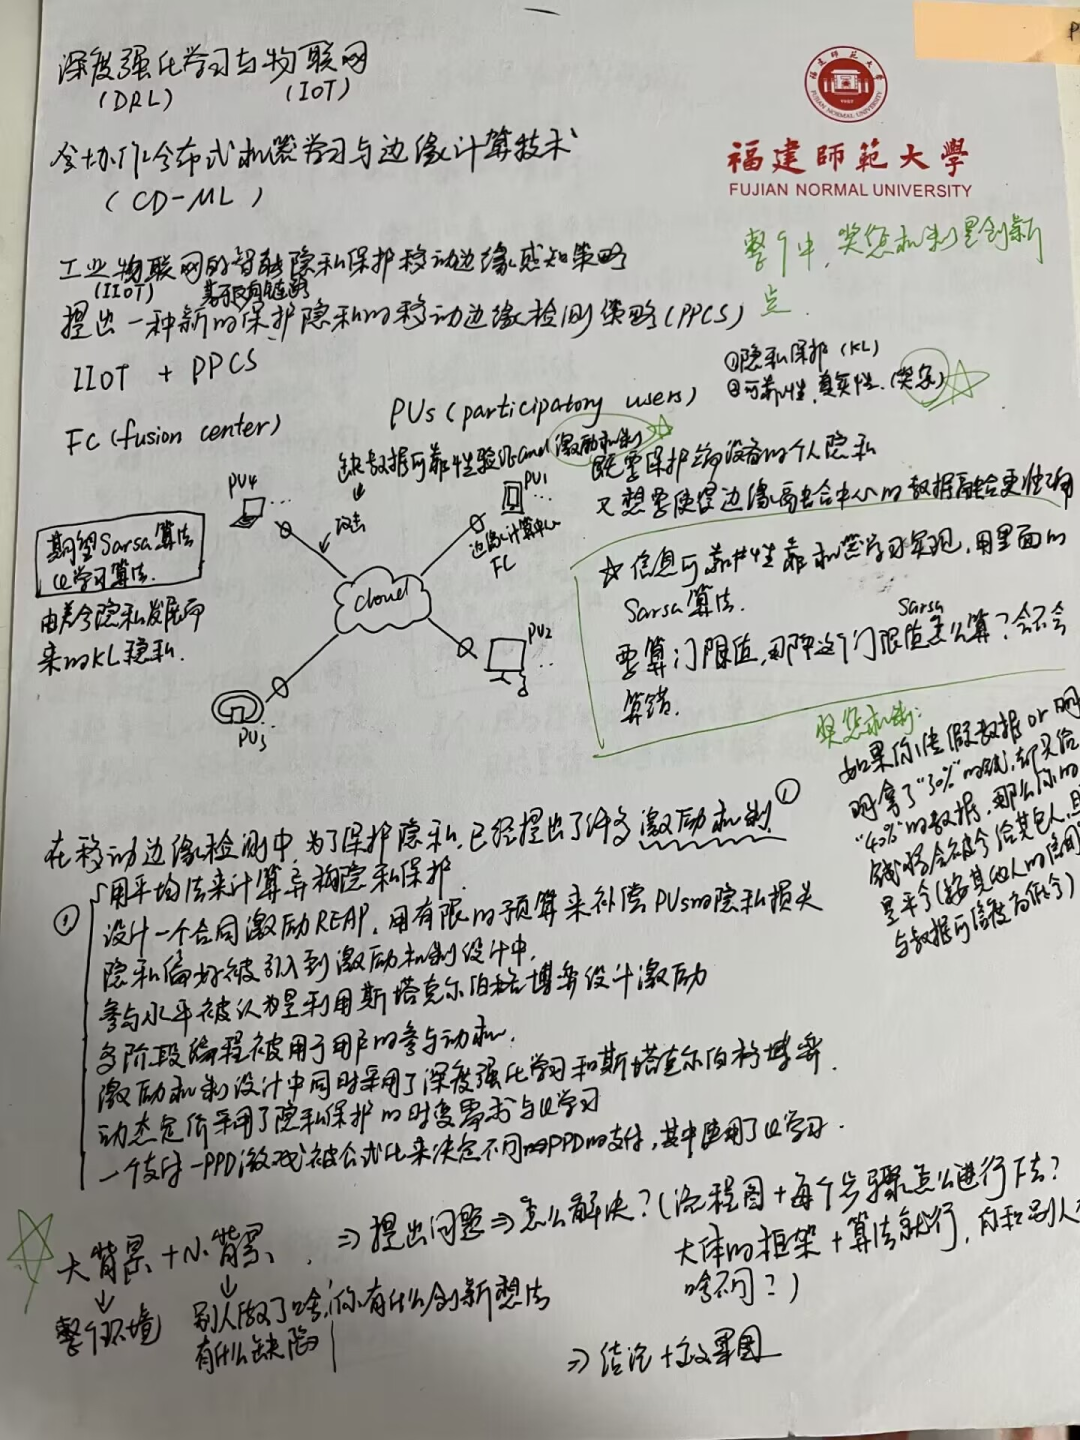 P
深度强化学习与物联网
(DRL) (IoT)
福建师范大学
FUJIAN NORMAL UNIVERSITY
福建師範大學
FUJIAN NORMAL UNIVERSITY
协作分布式机器学习与边缘计算技术
(CD-ML)
整个中,奖惩机制是创新
点.
工业物联网的智能隐私保护移动边缘感知策略
(IIOT)
提出一种新的保护隐私的移动边缘检测策略(PPCS)
IIOT + PPCS
①隐私保护 (KL)
②可靠性,真实性.(奖惩)
FC (fusion center)
PUs (participatory users)
缺数据可靠性验证and激励机制
既要保护端设备的个人隐私
又想要使得边缘融合中心的数据融合更准确
PU4
PU1
攻击
边缘计算中心
FC
cloud
PU2
PU3
期望Sarsa算法
Q学习算法.
由差分隐私发展而
来的KL隐私.
☆信息可靠性靠机器学习实现,用里面的
Sarsa算法.
Sarsa
要算门限值,那么这个门限值怎么算?会不会
算错.
奖惩机制:
如果你传假数据or明
明拿了"50%"的钱,却只给
"40%"的数据,那么你的
钱将会被分给其他人,且
是平分(按其他人的信用
与数据可信度高低分)
在移动边缘检测中,为了保护隐私,已经提出了许多激励机制 ①
① 用平均法来计算异构隐私保护.
设计一个合同激励REAP,用有限的预算来补偿PUs的隐私损失
隐私偏好被引入到激励机制设计中.
参与水平被认为是利用斯塔克尔伯格博弈设计激励
多阶段编程被用于用户的参与动机.
激励机制设计中同时采用了深度强化学习和斯塔克尔伯格博弈.
动态定价采用了隐私保护的时变需求与Q学习
一个支付-PPD游戏被公式化来决定不同的PPD的支付,其中使用了Q学习.
大背景+小背景. ⇒提出问题⇒怎么解决?(流程图+每个步骤怎么进行下去?
大体的框架+算法就行,有和别人
啥不同?)
整个环境
别人做了啥,你有什么创新想法
有什么缺陷
⇒结论+